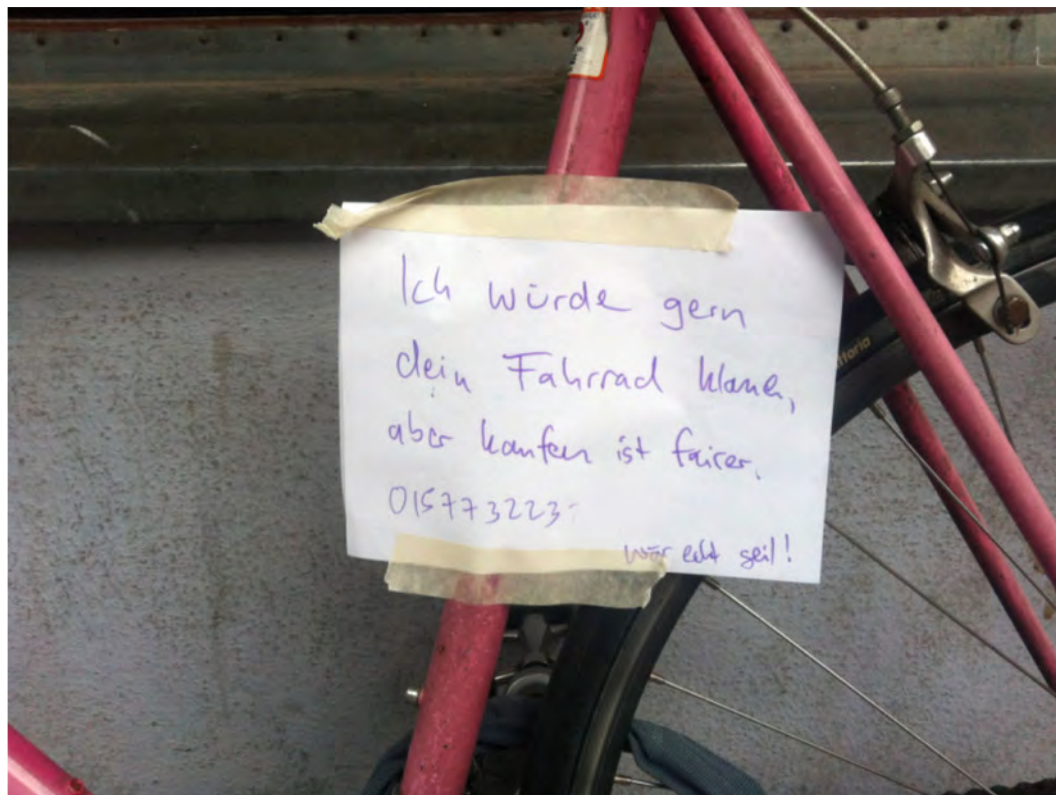 Ich würde gern
dein Fahrrad klauen,
aber kaufen ist fairer.
015773223
wär echt geil!
ttoria